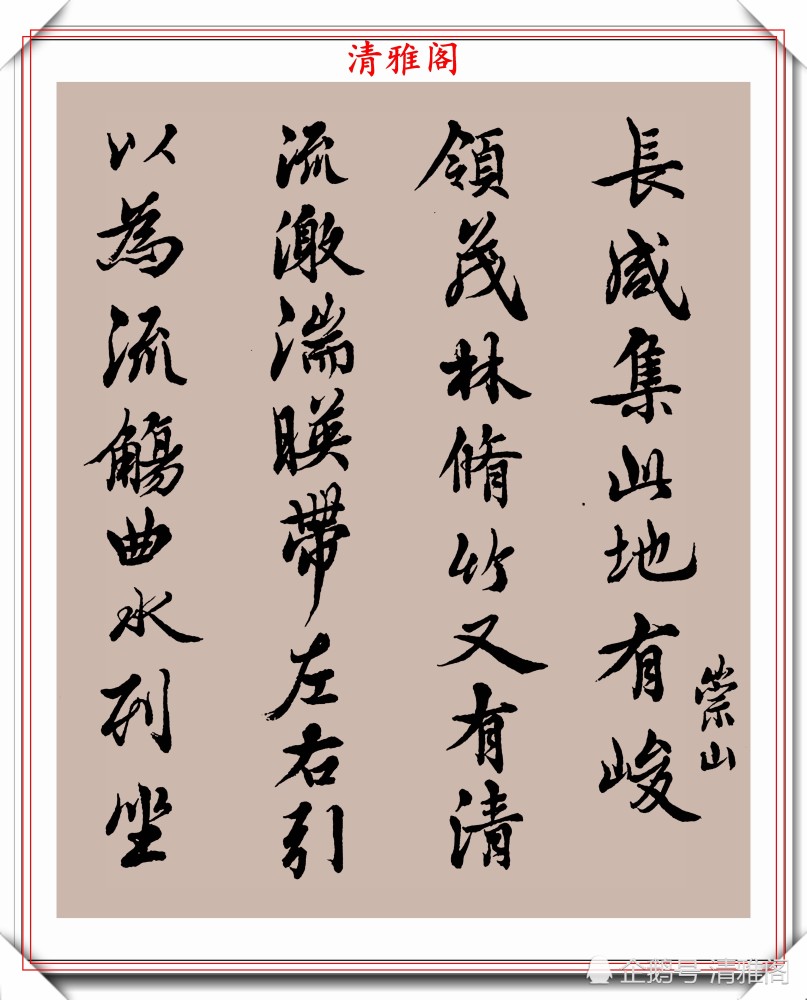 清雅阁
長咸集此地有峻
崇山
領茂林脩竹又有清
流激湍暎帶左右引
以為流觴曲水列坐
企鹅号 清雅阁